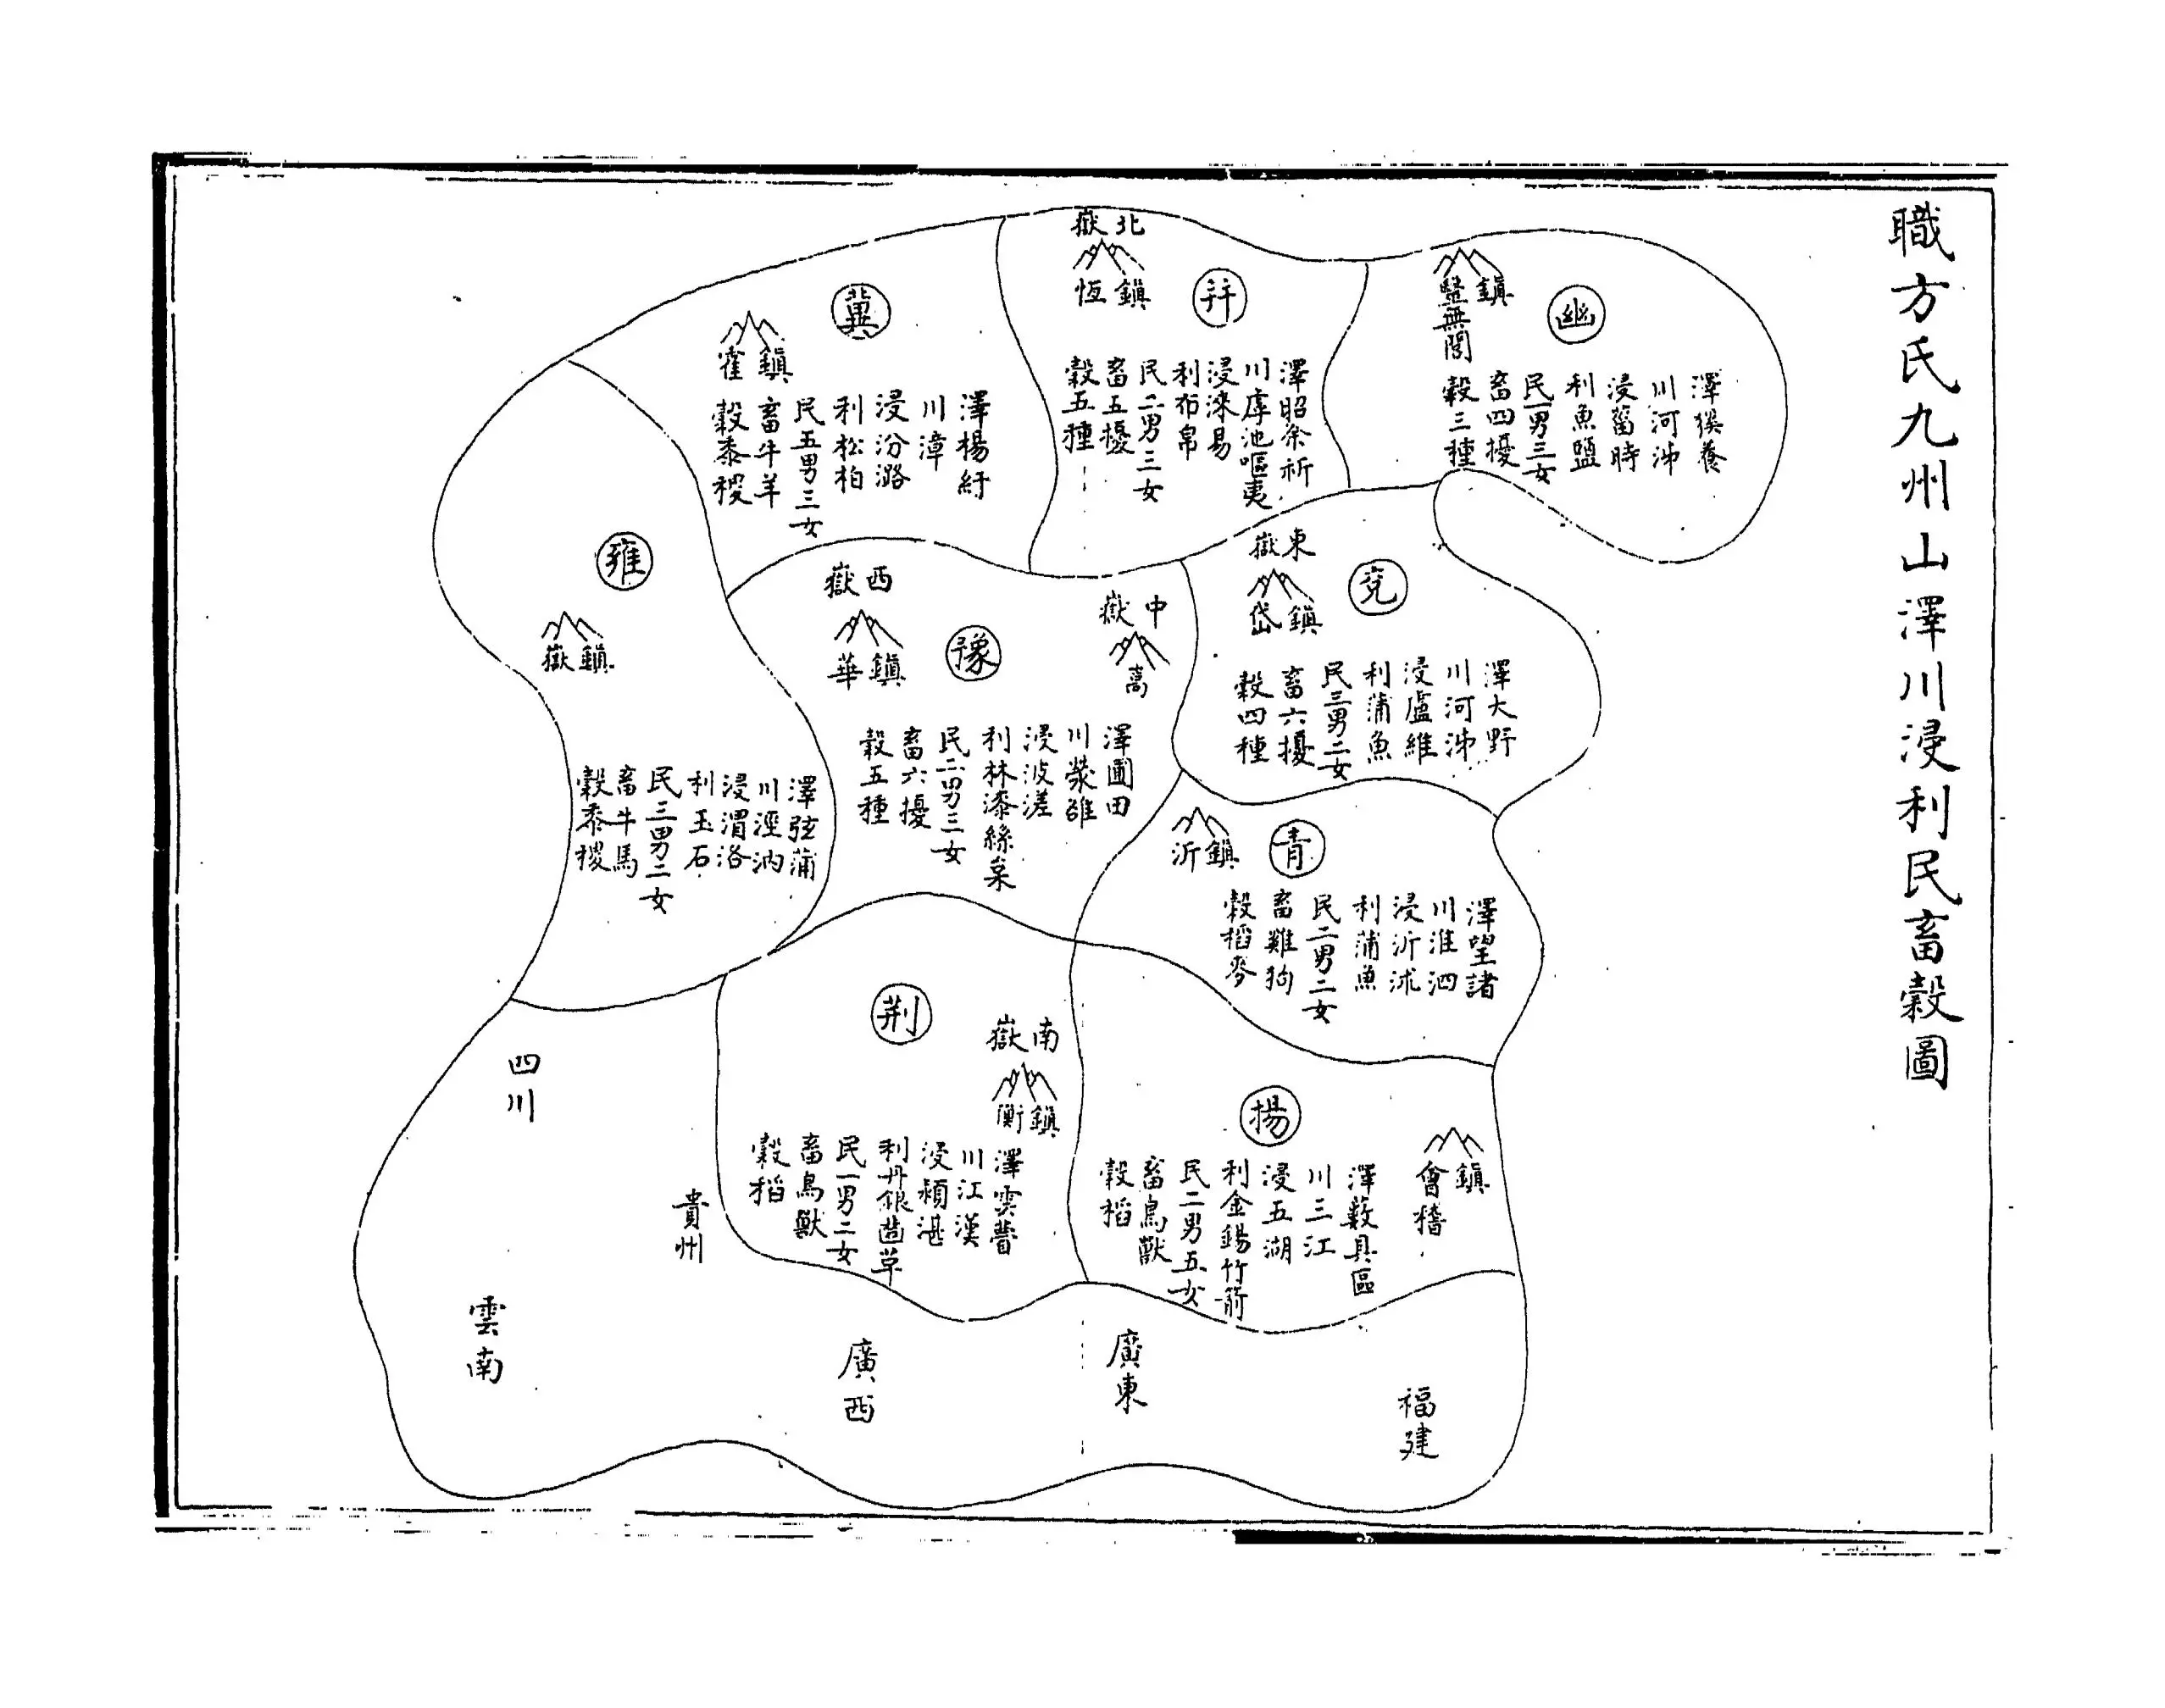 職方氏九州山澤川浸利民畜穀圖
幽
鎮
醫無閭
澤貕養
川河泲
浸菑時
利魚鹽
民一男三女
畜四擾
穀三種
北嶽
鎮
恆
并
澤昭余祈
川虖池嘔夷
浸淶易
利布帛
民二男三女
畜五擾
穀五種
冀
鎮
霍
澤楊紆
川漳
浸汾潞
利松柏
民五男三女
畜牛羊
穀黍稷
東嶽
鎮
岱
兗
澤大野
川河泲
浸盧維
利蒲魚
民三男二女
畜六擾
穀四種
中嶽
嵩
西嶽
鎮
華
豫
澤圃田
川滎雒
浸波溠
利林漆絲枲
民二男三女
畜六擾
穀五種
雍
鎮
嶽
澤弦蒲
川涇汭
浸渭洛
利玉石
民三男二女
畜牛馬
穀黍稷
青
鎮
沂
澤望諸
川淮泗
浸沂沭
利蒲魚
民二男二女
畜雞狗
穀稻麥
揚
鎮
會稽
澤藪具區
川三江
浸五湖
利金錫竹箭
民二男五女
畜鳥獸
穀稻
荆
南嶽
鎮
衡
澤雲瞢
川江漢
浸潁湛
利丹銀齒革
民一男二女
畜鳥獸
穀稻
四川
貴州
雲南
廣西
廣東
福建